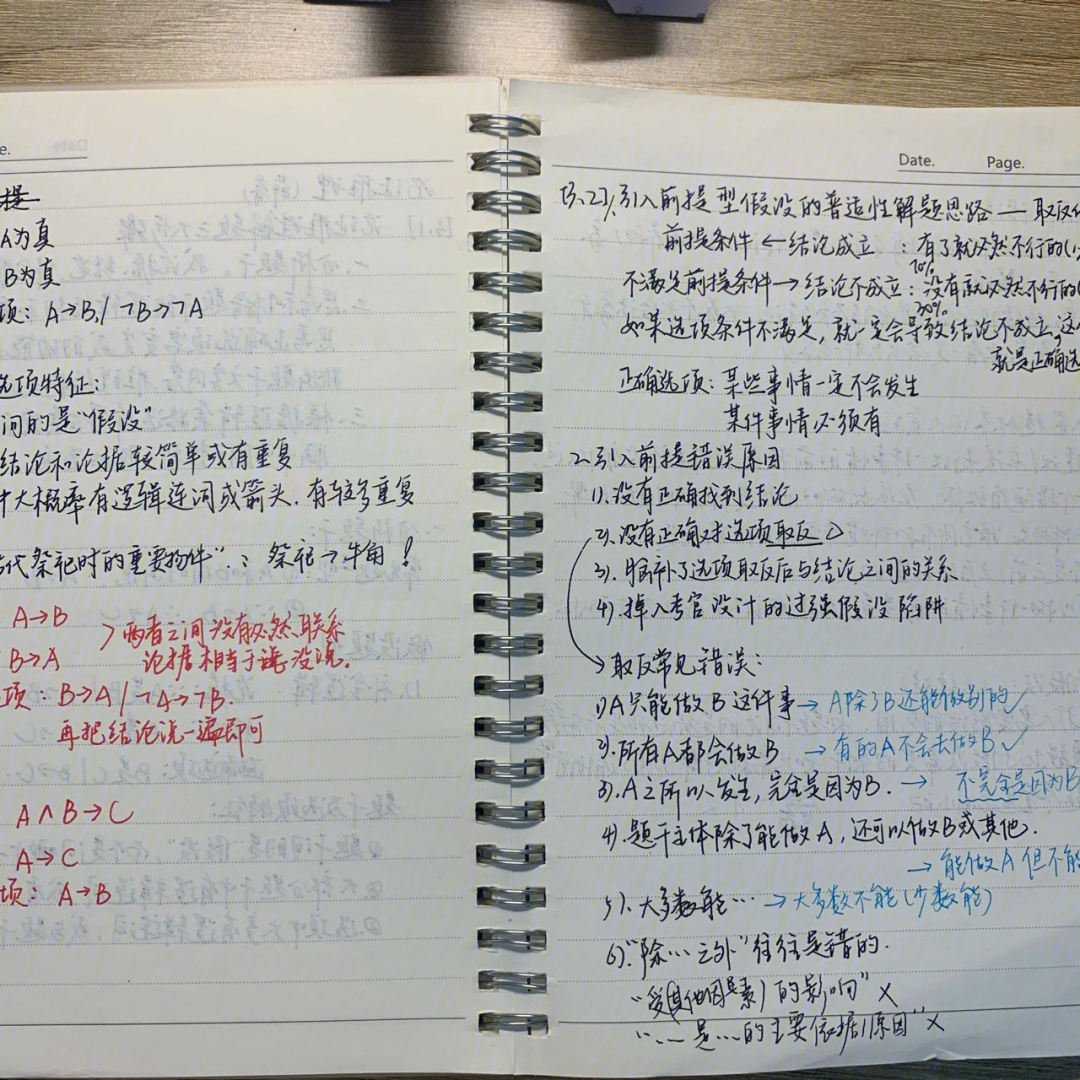 e.
提
A为真
B为真
项: A→B / ¬B→¬A
选项特征:
问的是"假设"
结论和论据较简单或有重复
大概率有逻辑连词或箭头. 有较多重复
代祭祀时的重要物件": 祭祀→牛角!
A→B
B→A
>两者之间没有必然联系
论据相当于没说.
项: B→A / ¬A→¬B.
再把结论说一遍即可
A∧B→C
A→C
项: A→B
Date. Page.
[3.2] 引入前提型假设的普适性解题思路 — 取反
前提条件 ← 结论成立 : 有了就必然不行的
70%
不满足前提条件 → 结论不成立: 没有就必然不行的
30%
如果选项条件不满足, 就一定会导致结论不成立, 这
就是正确选
正确选项: 某些事情一定不会发生
某件事情必须有
2. 引入前提错误原因
1). 没有正确找到结论
2). 没有正确对选项取反
3). 脑补了选项取反后与结论之间的关系
4). 掉入考官设计的过强假设陷阱
→取反常见错误:
1) A只能做B这件事 → A除了B还能做别的 ✓
2). 所有A都会做B → 有的A不会去做B ✓
3). A之所以发生, 完全是因为B. → 不完全是因为B
4). 题干主体除了能做A, 还可以做B或其他.
→ 能做A 但不能
5). 大多数能… → 大多数不能(少数能)
6). "除…之外"往往是错的.
"受(其他因素)的影响" ×
"…是…的主要依据/原因" ×